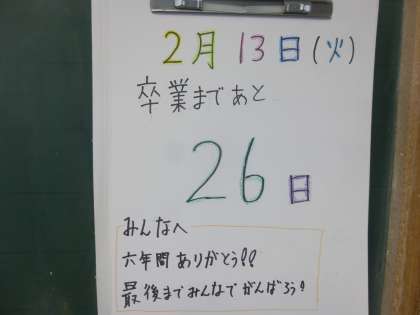 2月13日(火)
卒業まであと
26日
みんなへ
六年間ありがとう!!
最後までみんなでがんばろう!